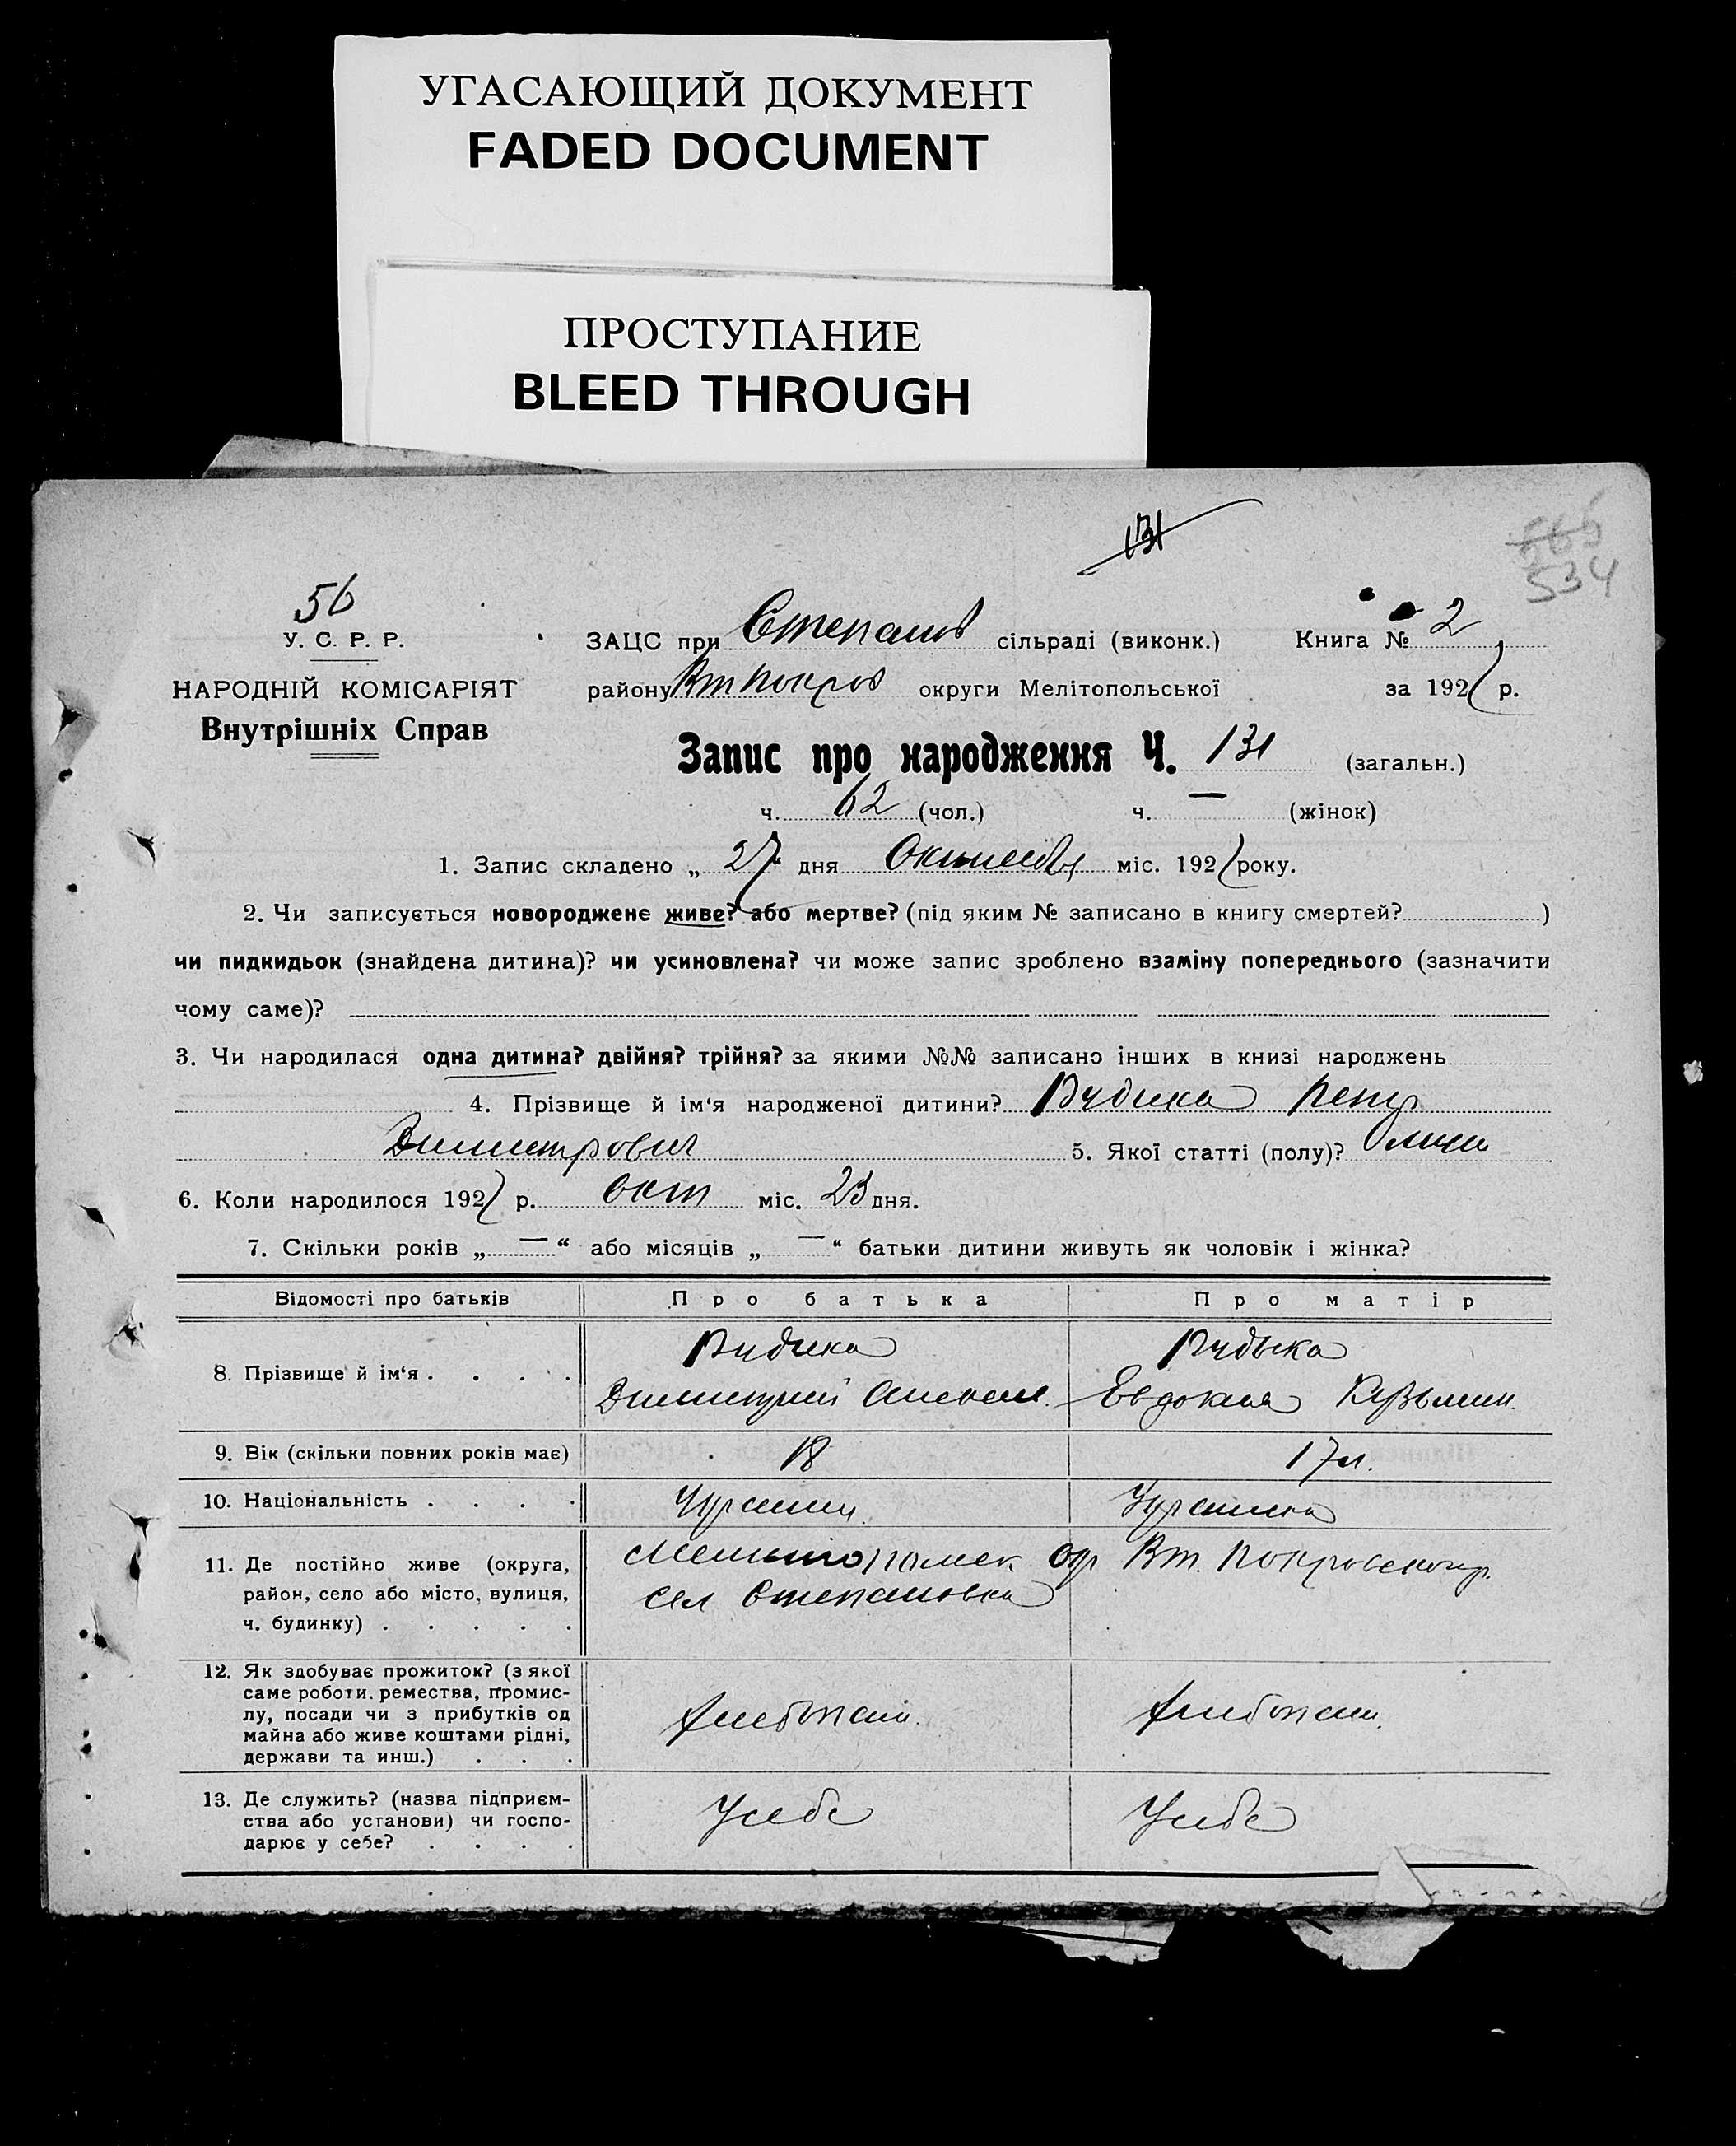 УГАСАЮЩИЙ ДОКУМЕНТ
FADED DOCUMENT
ПРОСТУПАНИЕ
BLEED THROUGH
131
534
56
У. С. Р. Р.
НАРОДНІЙ КОМІСАРІЯТ
Внутрішніх Справ
ЗАЦС при Степанов сільраді (виконк.) Книга № 2
району Вт Покров округи Мелітопольської за 1927 р.
Запис про народження Ч. 131 (загальн.)
ч. 62 (чол.) ч. — (жінок)
1. Запис складено „ 27 “ дня Октября міс. 1927 року.
2. Чи записується новороджене живе? або мертве? (під яким № записано в книгу смертей? )
чи пидкидьок (знайдена дитина)? чи усиновлена? чи може запис зроблено взаміну попереднього (зазначити
чому саме)?
3. Чи народилася одна дитина? двійня? трійня? за якими №№ записано інших в книзі народжень
4. Прізвище й ім‘я народженої дитини? Петр
Димитрович 5. Якої статті (полу)?
6. Коли народилося 1927 р. окт міс. 23 дня.
7. Скільки років „ — “ або місяців „ — “ батьки дитини живуть як чоловік і жінка?
Відомості про батьків Про батька Про матір
8. Прізвище й ім‘я
Димитрий Алексеев. Евдокия Кузьмин.
9. Вік (скільки повних років має) 18 17 л.
10. Національність Украин. Украинка
11. Де постійно живе (округа, район, село або місто, вулиця, ч. будинку) Мелитополск. окр Вт. Покровског р.
сел Степановка
12. Як здобуває прожиток? (з якої
саме роботи. ремества, промис-
лу, посади чи з прибутків од
майна або живе коштами рідні,
держави та инш.) хлебопаш. хлебопаш.
13. Де служить? (назва підприєм-
ства або установи) чи госпо-
дарює у себе? У себе У себе